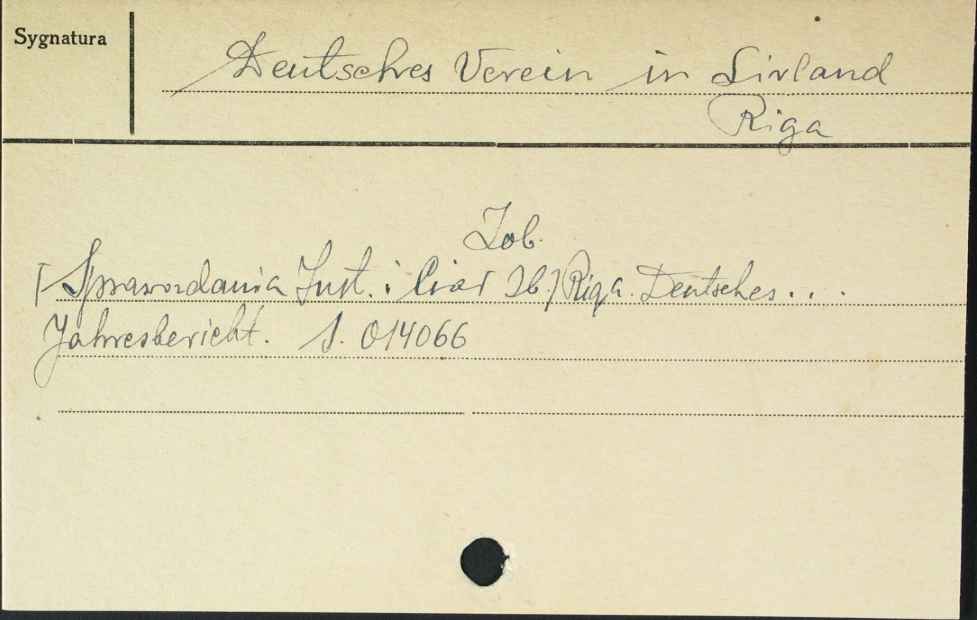 Sygnatura
Deutsches Verein in Livland
Riga
Zob.
[Sprawozdania Inst. i Tow. Zb.] Riga. Deutsches...
Jahresbericht. S. 014066